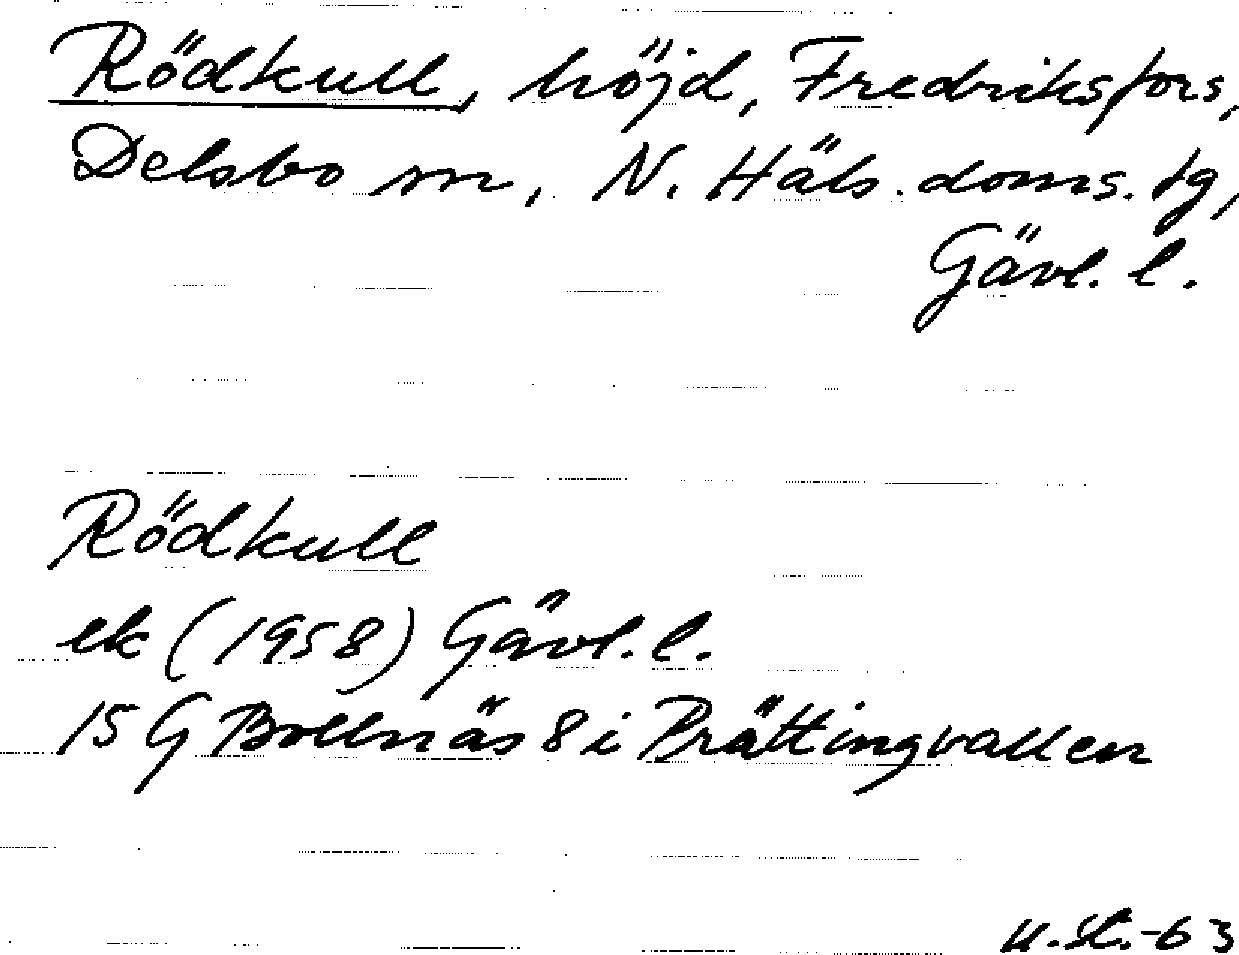 Rödkull, höjd, Fredriksfors,
Delsbo sn, N. Häls. doms. tg,
Gävl. l.
Rödkull
ek (1958) Gävl. l.
15 G Bollnäs 8 i Prättingvallen
-63